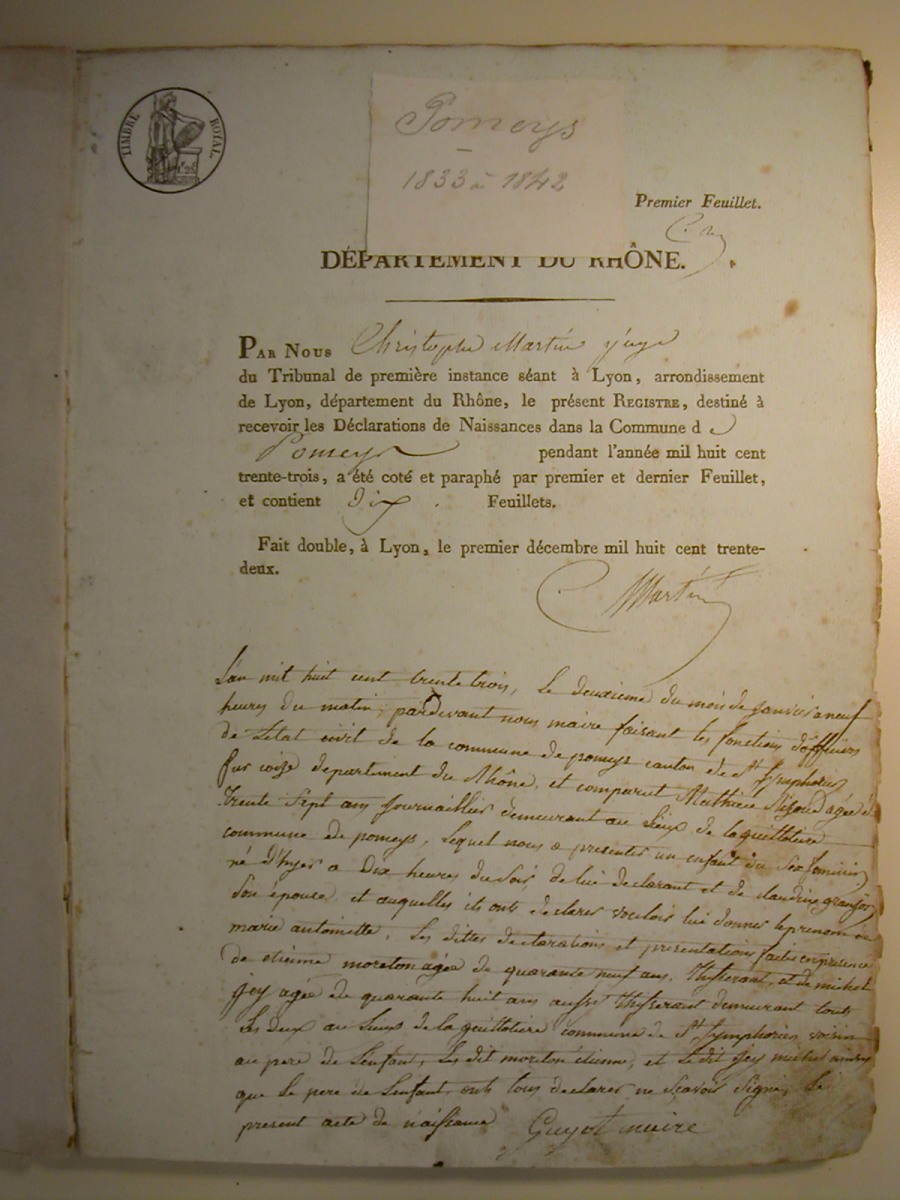 TIMBRE ROYAL
Pomeys
1833 à 1842
Premier Feuillet.
DÉPARTEMENT DU RHÔNE.
PAR NOUS Christophe Martin juge
du Tribunal de première instance séant à Lyon, arrondissement
de Lyon, département du Rhône, le présent REGISTRE, destiné à
recevoir les Déclarations de Naissances dans la Commune d e
Pomeys pendant l'année mil huit cent
trente-trois, a été coté et paraphé par premier et dernier Feuillet,
et contient Dix . Feuillets.
Fait double, à Lyon, le premier décembre mil huit cent trente-
deux.
C Martin
L'an mil huit cent trente trois, le deuxieme du mois de janvier a neuf
heures du matin, pardevant nous maire faisant les fonctions d'officier
de L'etat civil de la commune de pomeys canton de St Symphorien
sur coize departement du Rhône, et comparut Mathieu agée de
trente Sept ans Journaillier demeurant au Lieux de la guillotiere
commune de pomeys, Lequel nous a presenter un enfant du Sex feminin
né d'hyer a Dix heures du Soir de lui declarant et de claudine granjon
Son épouse, et auquelles ils onts declarer vouloir lui donner le prenom de
marie antoinette, Les dittes declarations et presentations faites en presence
de etienne moreton agée de quarante neuf ans, thisserant, et de michel
jey agée de quarante huit ans aussi thisserant demeurant touts
Les Deux au Lieux de la guillotiere commune de St Symphorien voisin
au pere de L'enfant, Les dit moreton étienne, et Le dit jey michel ainsy
que Le pere de L'enfant, onts tous declarer ne Scavoir Signé, Le
present acte de naissance Guyot maire